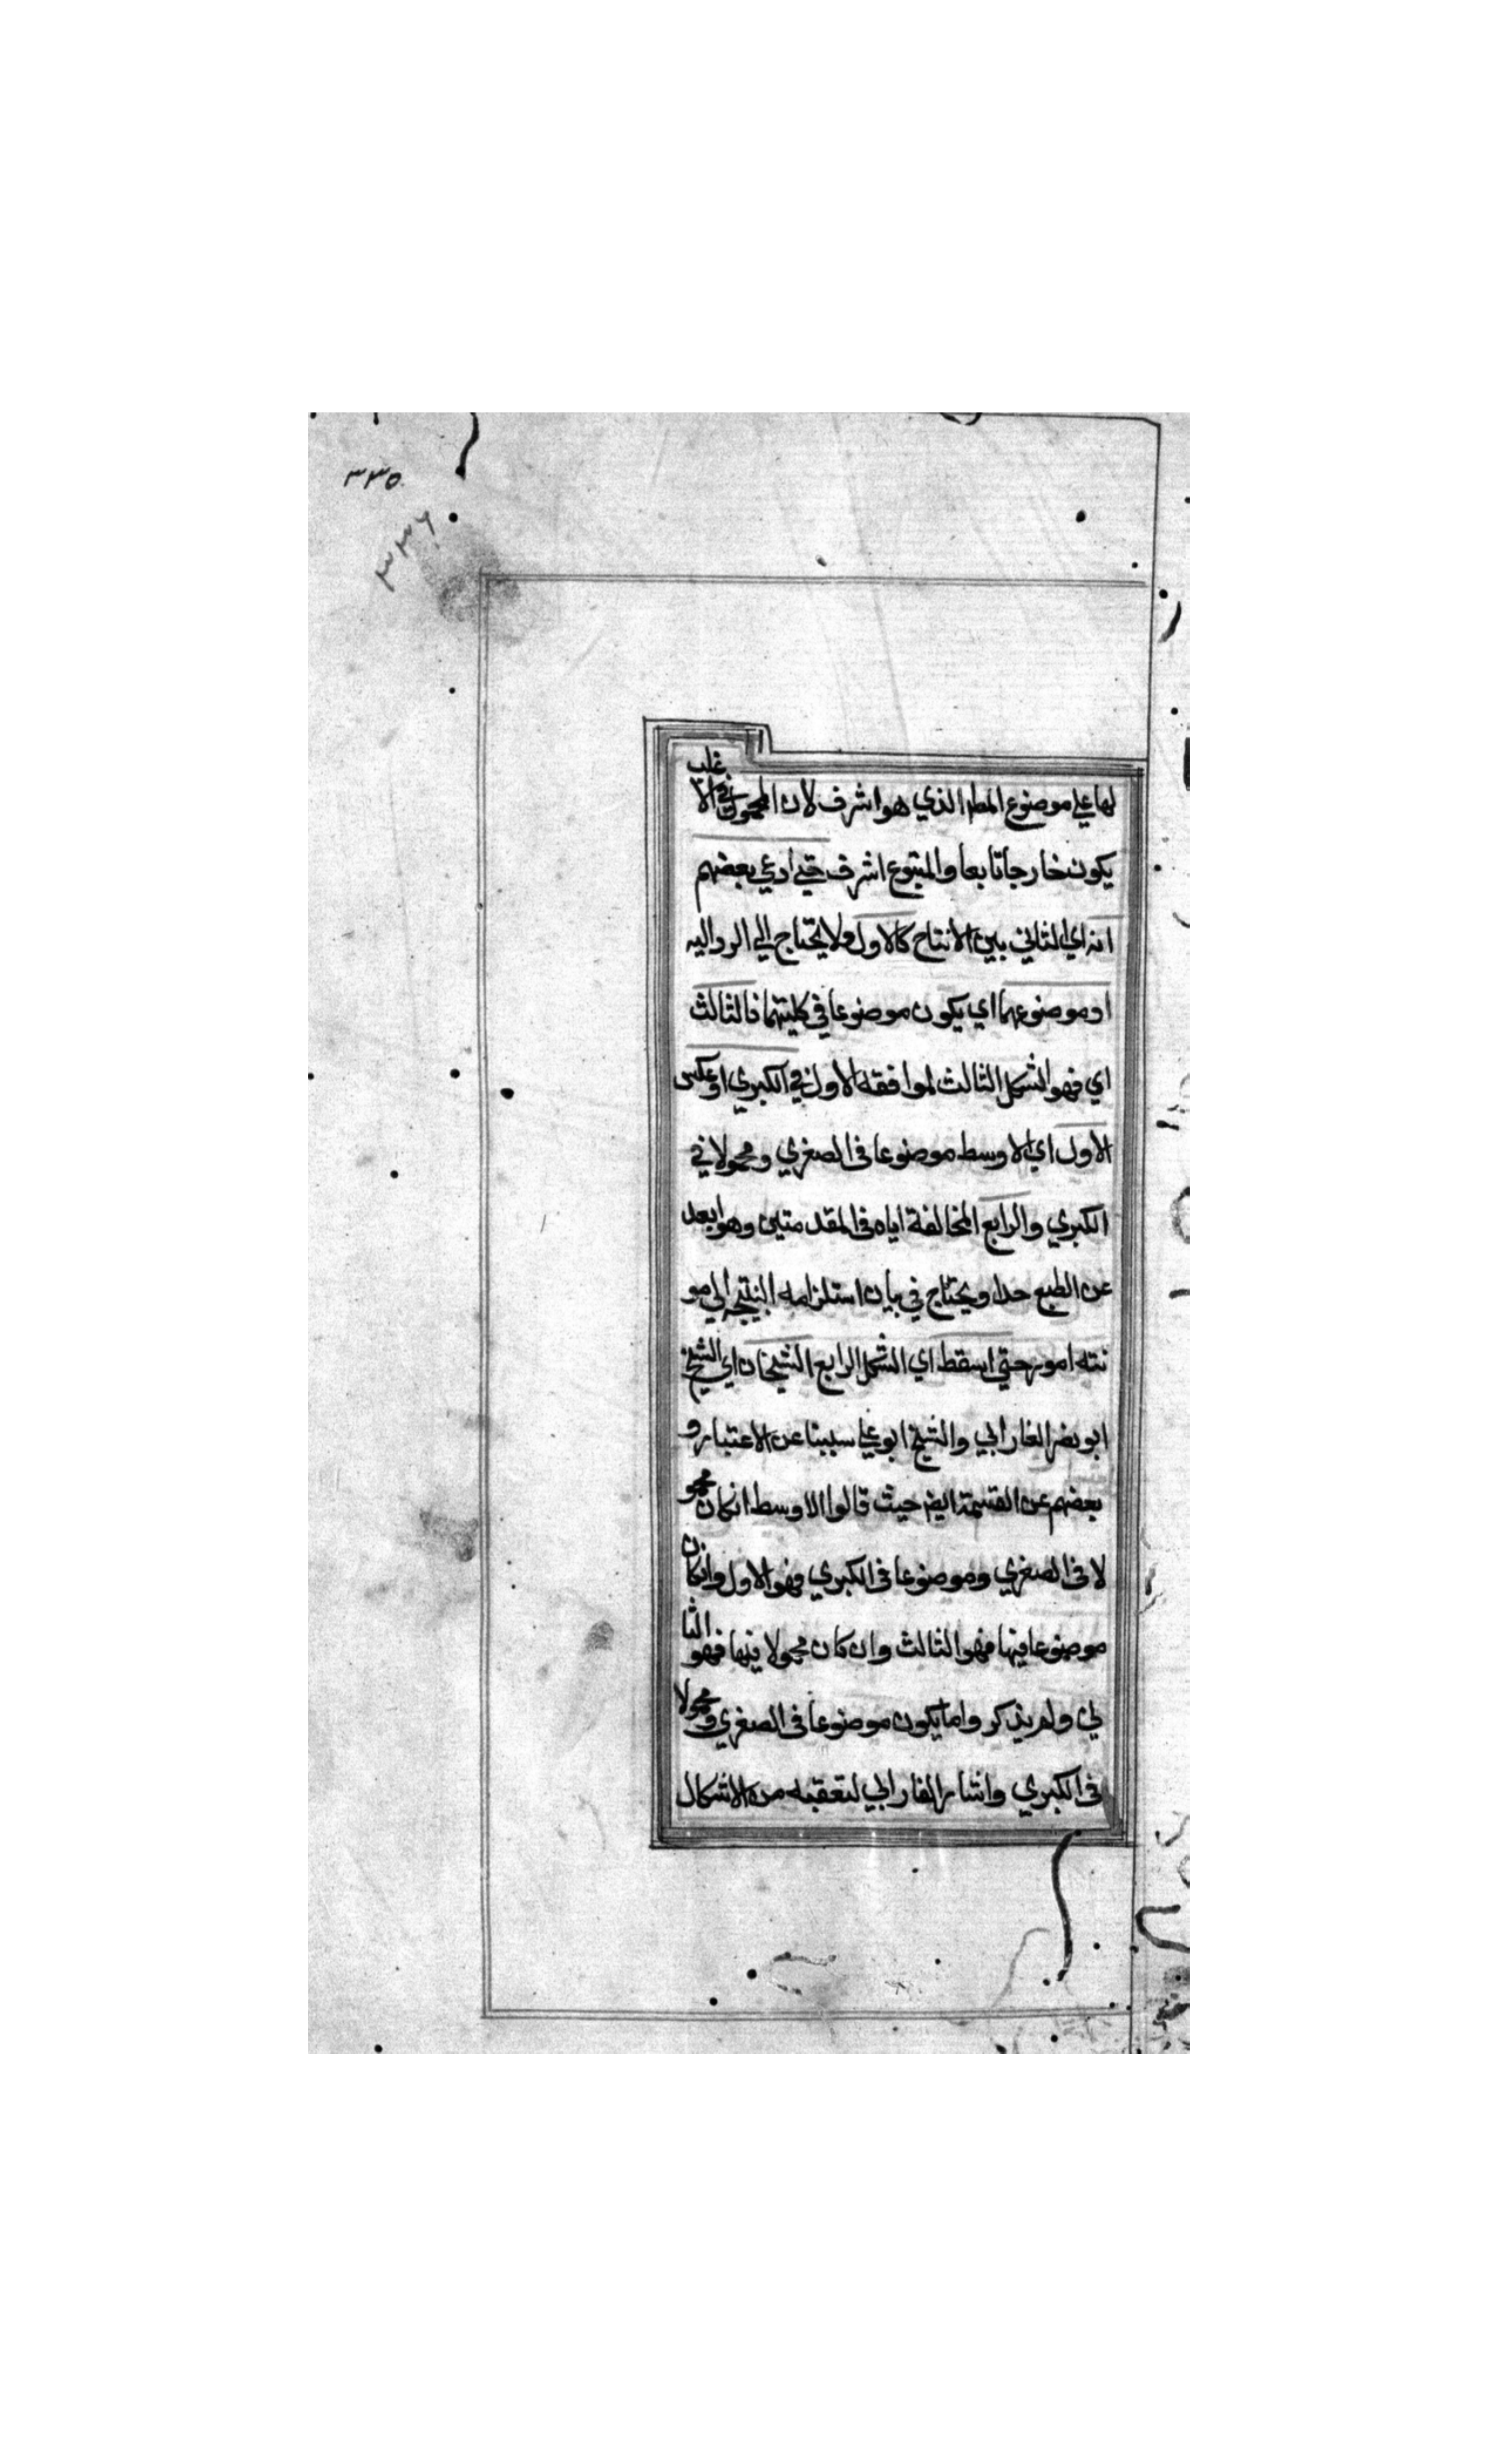 ٣٣٥
٣٣٦
لها علي موضوع المط الذي هو اشرف لان المحمول في الاغلب
يكون خارجا تابعا والمتبوع اشرف حتي ادعي بعضهم
انه اي الثاني بين الانتاج كالاول ولا يحتاج الي الرد اليه
او موضوعهما اي يكون موضوعا في كليتهما فالثالث
اي فهو الشكل الثالث لموافقه الاول في الكبري او عكس
الاول اي الاوسط موضوعا في الصغري ومحمولا في
الكبري والرابع المخالفة اياه في المقدمتين وهو ابعد
عن الطبع جدا ويحتاج في بيان استلزامه النتيجه الي مو
نته امور حتي اسقط اي الشكل الرابع الشيخان اي الشيخ
ابو نصر الفارابي والشيخ ابو علي سينا عن الاعتبار و
بعضهم عن القسمة ايض حيث قالوا الاوسط انكان محمو
لا في الصغري وموضوعا في الكبري فهو الاول وانكان
موضوعا فيها فهو الثالث وان كان محمولا فيها فهو الثا
ني ولم يذكر واما يكون موضوعا في الصغري ومحمولا
في الكبري واشار الفارابي لتعقبه من الاشكال